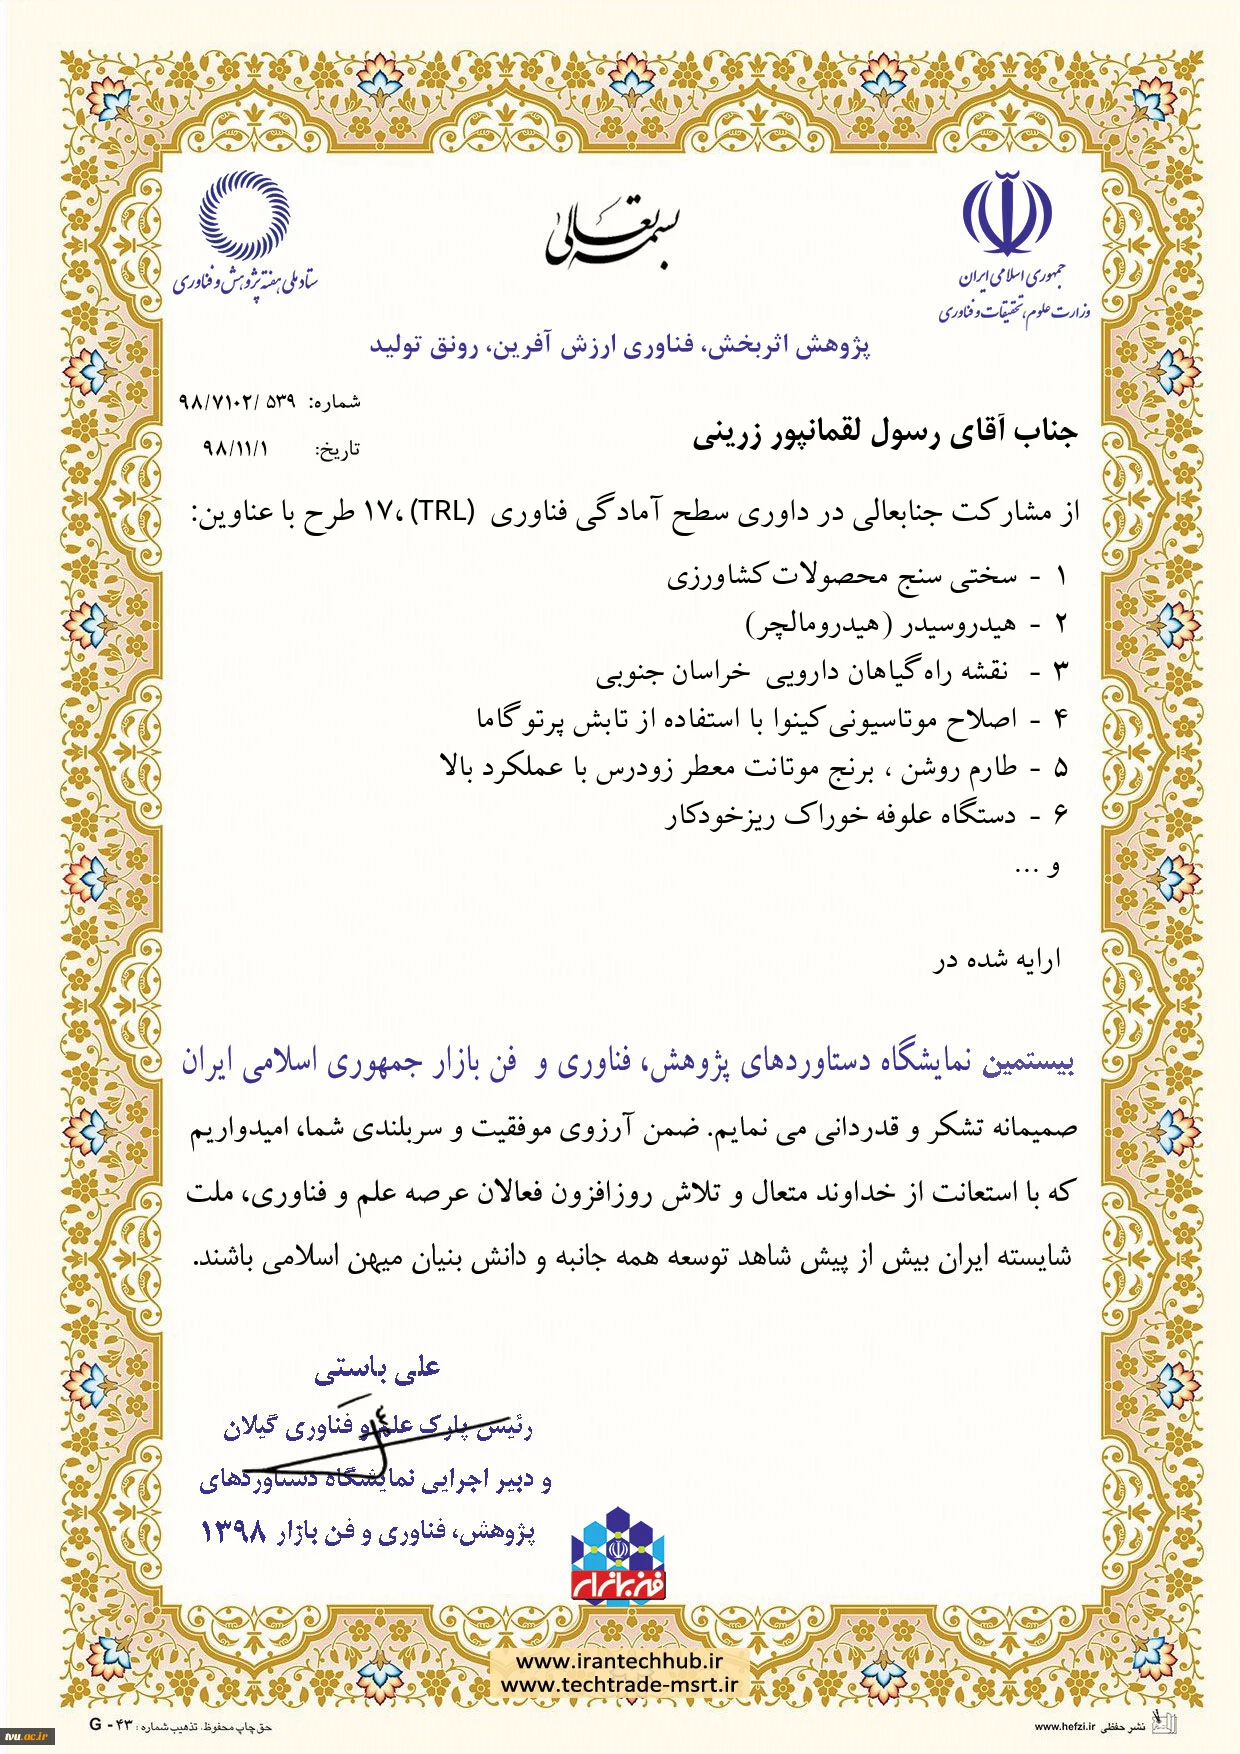 بسمه تعالی
جمهوری اسلامی ایران
وزارت علوم، تحقیقات و فناوری
ستاد ملی هفته پژوهش و فناوری
پژوهش اثربخش، فناوری ارزش آفرین، رونق تولید
شماره: ۹۸/۷۱۰۲/ ۵۳۹
تاریخ: ۹۸/۱۱/۱
جناب آقای رسول لقمانپور زرینی
از مشارکت جنابعالی در داوری سطح آمادگی فناوری (TRL)، ۱۷ طرح با عناوین:
۱ - سختی سنج محصولات کشاورزی
۲ - هیدروسیدر (هیدرومالچر)
۳ - نقشه راه گیاهان دارویی خراسان جنوبی
۴ - اصلاح موتاسیونی کینوا با استفاده از تابش پرتو گاما
۵ - طارم روشن ، برنج موتانت معطر زودرس با عملکرد بالا
۶ - دستگاه علوفه خوراک ریزخودکار
و ...
ارایه شده در
بیستمین نمایشگاه دستاوردهای پژوهش، فناوری و فن بازار جمهوری اسلامی ایران
صمیمانه تشکر و قدردانی می نمایم. ضمن آرزوی موفقیت و سربلندی شما، امیدواریم
که با استعانت از خداوند متعال و تلاش روزافزون فعالان عرصه علم و فناوری، ملت
شایسته ایران بیش از پیش شاهد توسعه همه جانبه و دانش بنیان میهن اسلامی باشند.
علی باستی
رئیس پارک علم و فناوری گیلان
و دبیر اجرایی نمایشگاه دستاوردهای
پژوهش، فناوری و فن بازار ۱۳۹۸
فن بازار
www.irantechhub.ir
www.techtrade-msrt.ir
نشر حفظی www.hefzi.ir
حق چاپ محفوظ، تذهیب شماره : G - ۴۳
tvu.ac.ir